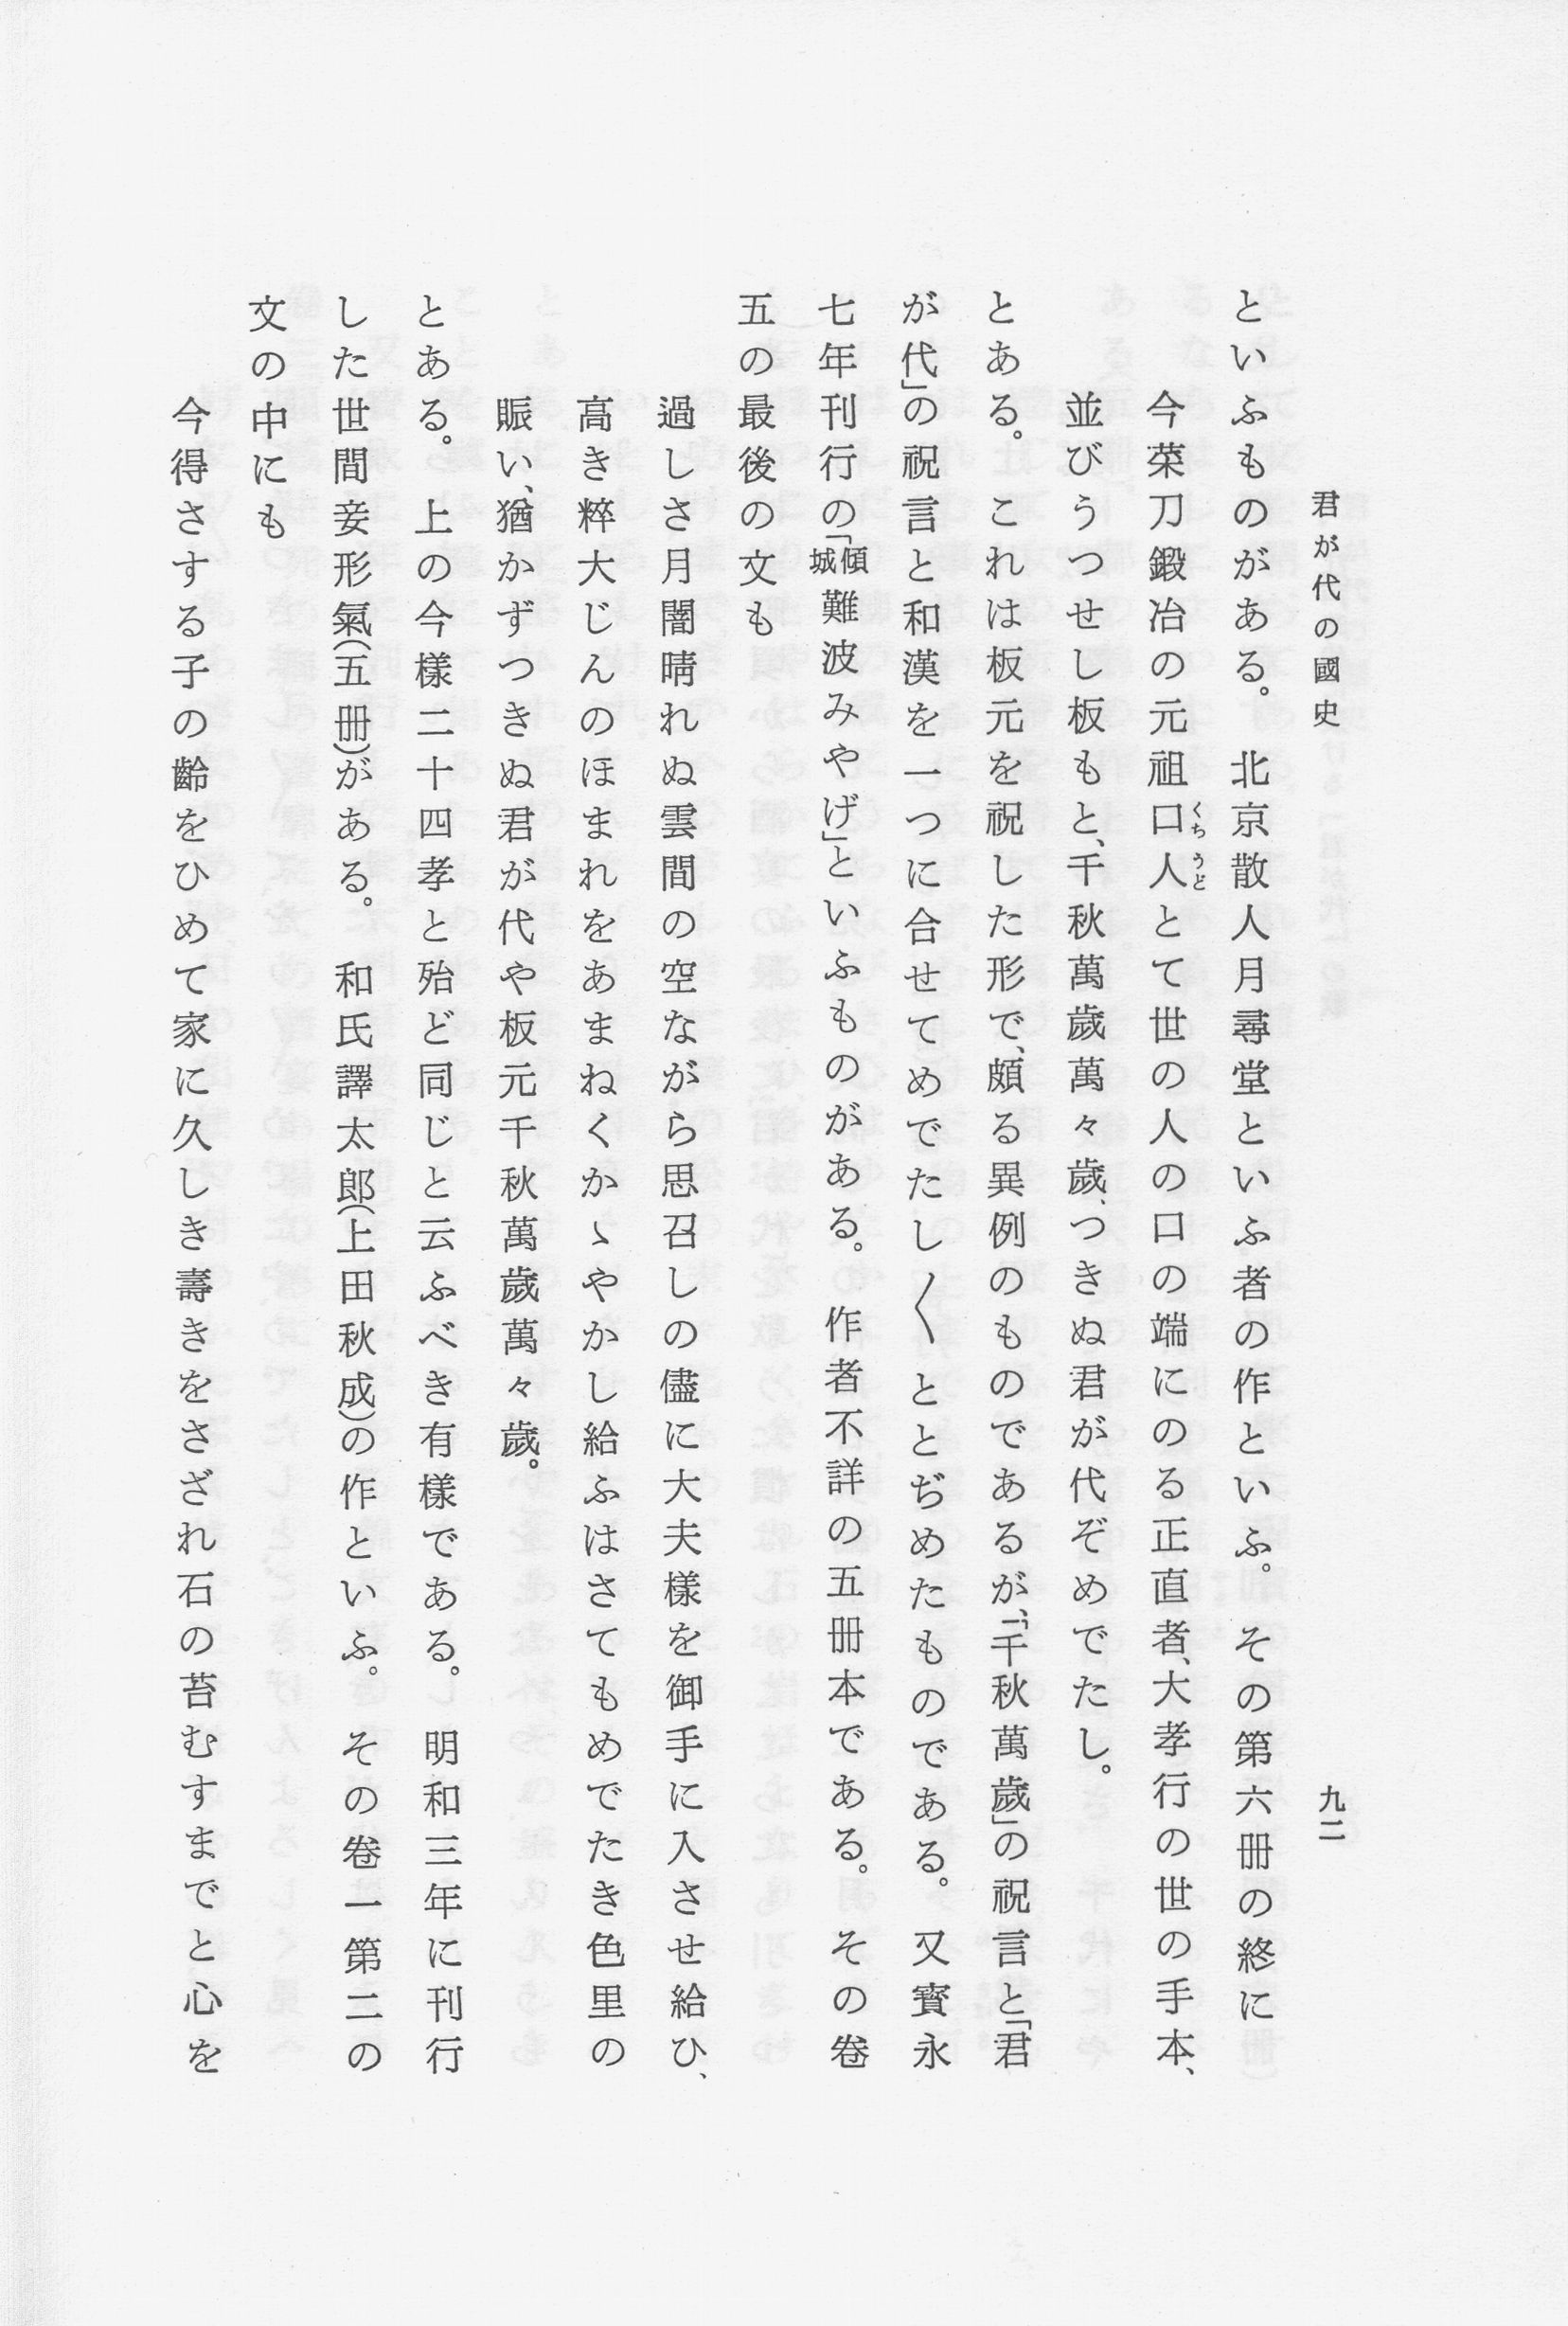 君が代の國史
九二
といふものがある。北京散人月尋堂といふ者の作といふ。その第六冊の終に
今菜刀鍛冶の元祖口人とて世の人の口の端にのる正直者、大孝行の世の手本、
くちうど
並びうつせし板もと、千秋萬歲萬々歲、つきぬ君が代ぞめでたし。
とある。これは板元を祝した形で、頗る異例のものであるが、「千秋萬歲」の祝言と「君
が代」の祝言と和漢を一つに合せてめでたし〱ととぢめたものである。又寳永
七年刊行の「傾城難波みやげ」といふものがある。作者不詳の五冊本である。その卷
五の最後の文も
過しさ月闇晴れぬ雲間の空ながら思召しの儘に大夫樣を御手に入させ給ひ、
高き粹大じんのほまれをあまねくかゝやかし給ふはさてもめでたき色里の
賑い、猶かずつきぬ君が代や板元千秋萬歲萬々歲。
とある。上の今樣二十四孝と殆ど同じと云ふべき有樣である。明和三年に刊行
した世間妾形氣(五冊)がある。和氏譯太郎(上田秋成)の作といふ。その卷一第二の
文の中にも
今得さする子の齡をひめて家に久しき壽きをさざれ石の苔むすまでと心を